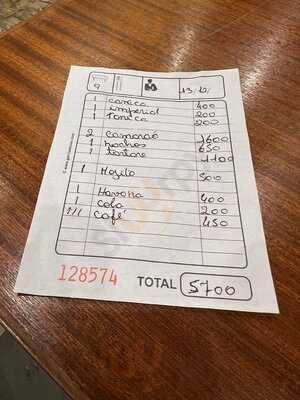 9 13/12/
1 caneca 400
1 imperial 200
1 Tonica 200
2 Camarão 1600
1 Nachos 650
1 tartare 1100
1 Mojito 500
1 Havana 400
1 Cola 200
café 450
128574 TOTAL 5700